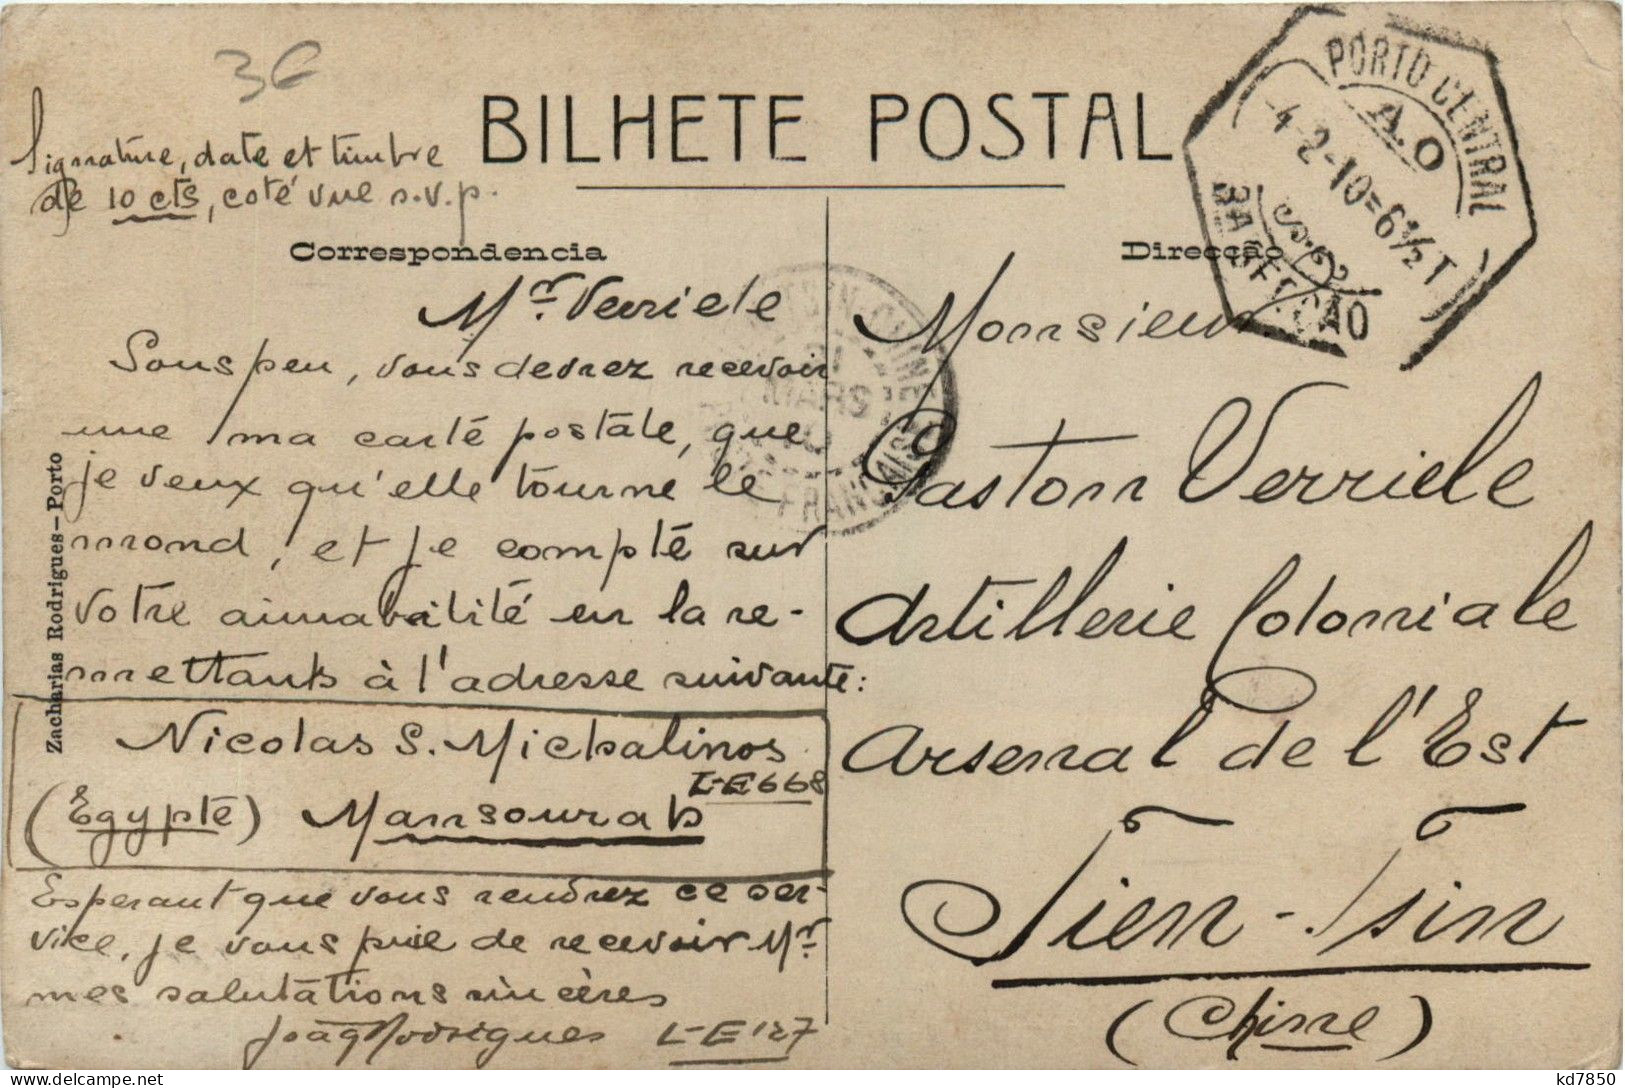 3€
Signature, date et timbre
de 10 cts, coté vue s.v.p.
BILHETE POSTAL
PORTO CENTRAL
A.O
4-2-10=6½T
3A SECÇÃO
Correspondencia
Direcção
Mr. Verriele
Sous peu, vous devrez recevoir
une ma carté postale, que
je veux qu'elle tourne le
mond, et je compté sur
votre aimabilité en la re-
mettants à l'adresse suivante:
Nicolas S. Michalinos
L-E 668
(Egypté) Mansourah
Esperant que vous rendrez ce ser-
vice, je vous prie de recevoir Mr
mes salutations sincères
João Rodrigues L-E 127
Zacharias Rodrigues-Porto
CHINE
MARS
FRANÇAISE
Monsieur
Gaston Verriele
Artillerie Coloniale
Arsenal de l'Est
Tien-Tsin
(Chine)
kd7850